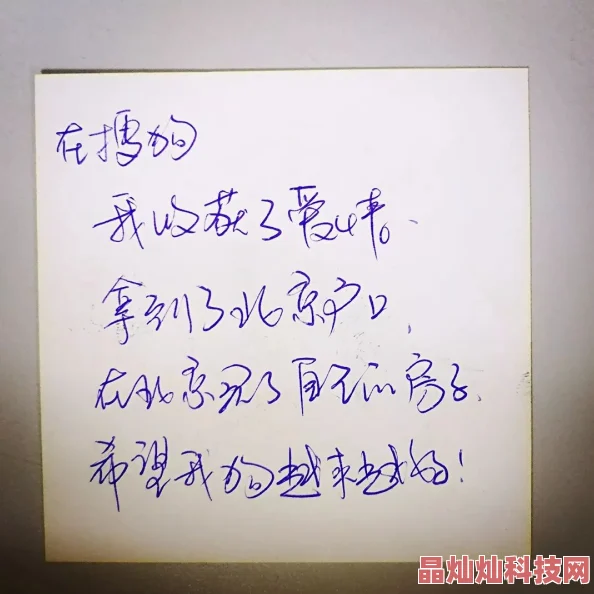 在搜狗
我收获了爱情。
拿到了北京户口,
在北京买了自己的房子.
希望我狗越来越好!
晶灿灿科技网